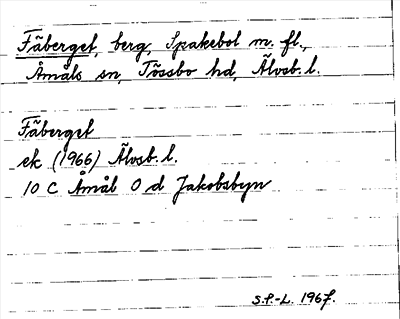 Fäberget, berg, Spakebol m. fl.,
Åmåls sn, Tössbo hd, Älvsb. l.
Fäberget
ek (1966) Älvsb. l.
10 C Åmål 0 d Jakobsbyn
S.F.-L. 1967.